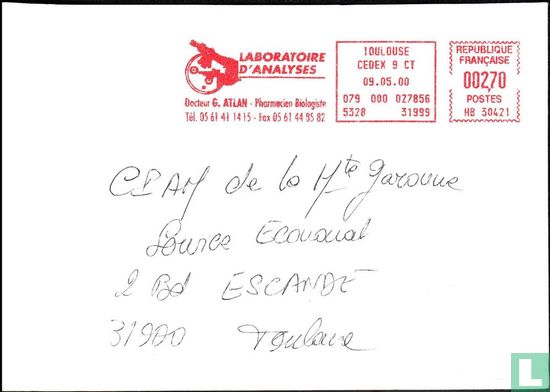 LABORATOIRE
D'ANALYSES
Docteur G. ATLAN - Pharmacien Biologiste
Tél. 05 61 41 14 15 - Fax 05 61 44 85 82
TOULOUSE
CEDEX 9 CT
09.05.00
079 000 027856
5328 31999
REPUBLIQUE
FRANÇAISE
00270
POSTES
HB 30421
CPAM de la Hte Garonne
2 Bd ESCANDE
31900 Toulouse
catawiki